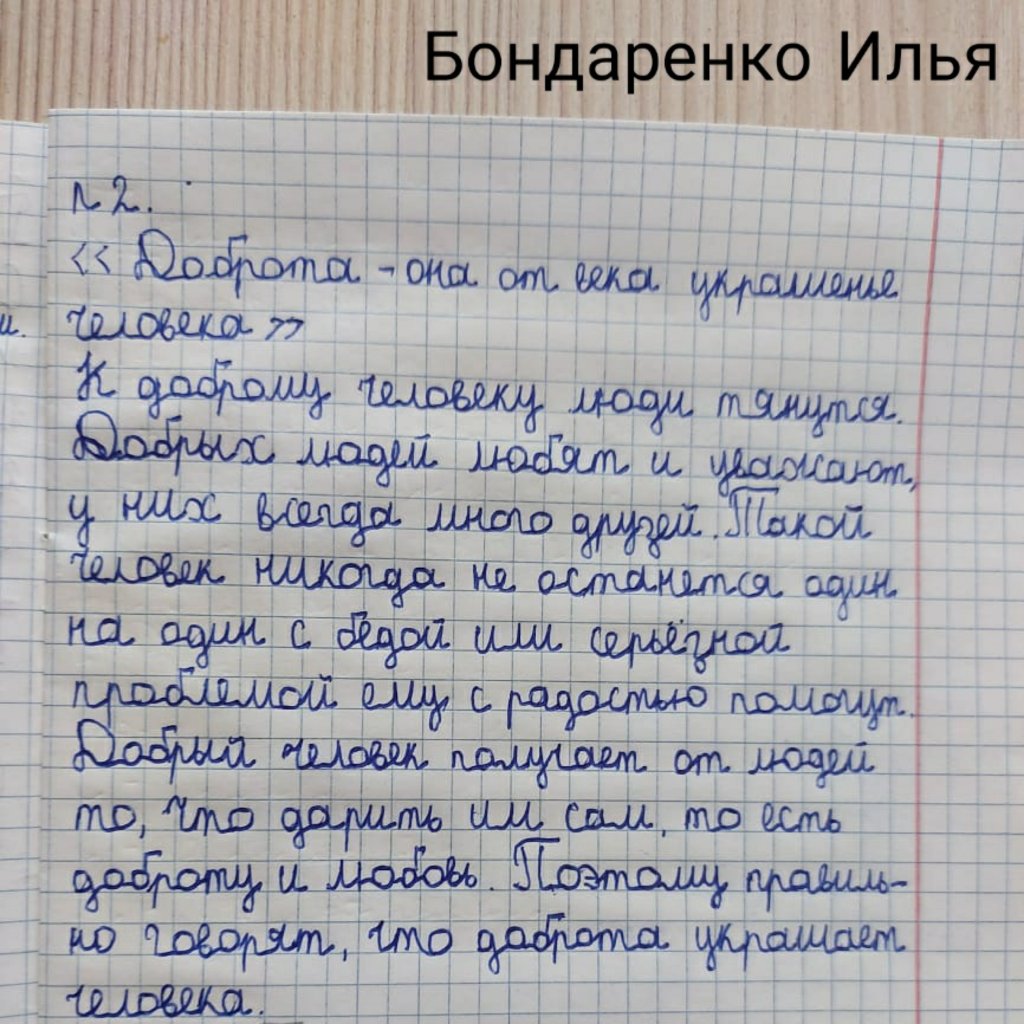 Бондаренко Илья
№ 2.
<< Доброта - она от века украшенье
и. человека >>
К доброму человеку люди тянутся.
Добрых людей любят и уважают,
у них всегда много друзей. Такой
человек никогда не останется один
на один с бедой или серьёзной
проблемой ему с радостью помогут.
Добрый человек получает от людей
то, что дарить им сам, то есть
доброту и любовь. Поэтому правиль-
но говорят, что доброта украшает
человека.